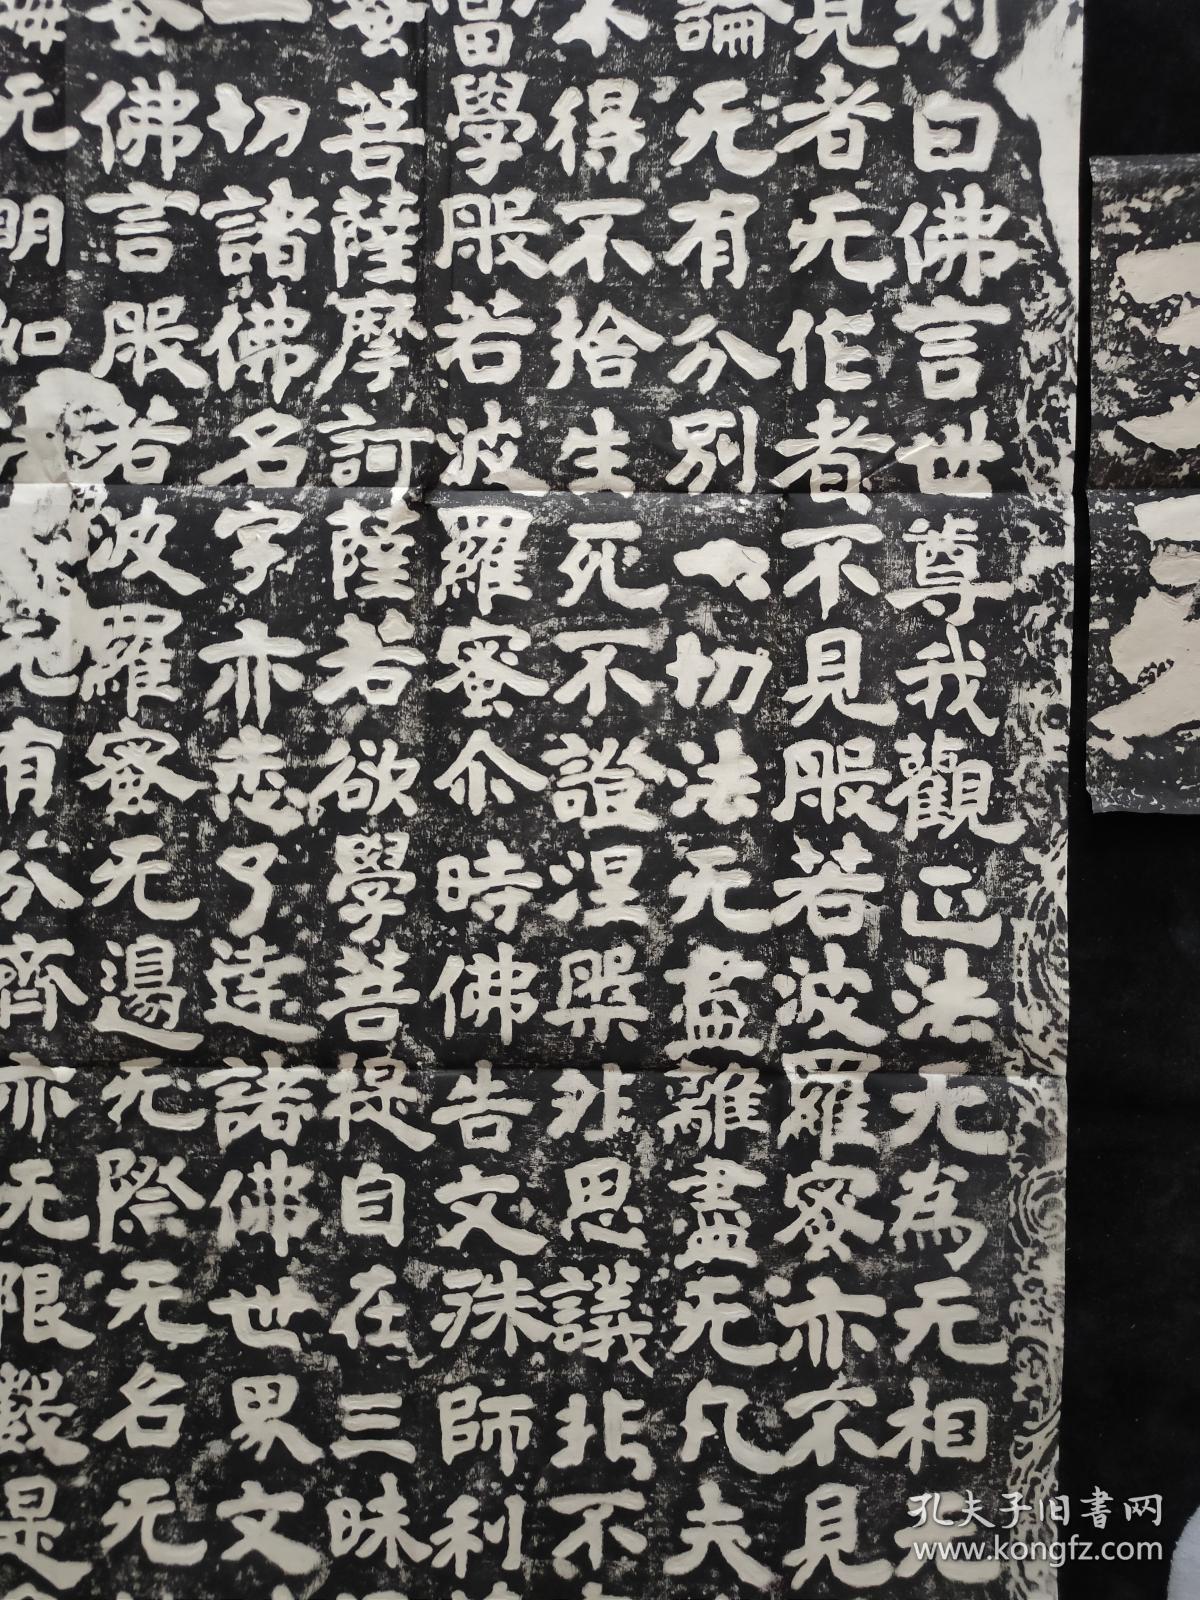 利曰佛言世尊我觀正法无為无相无
見者无作者不見般若波羅蜜亦不見
論无有分別一切法无盡離盡无凡夫
不得不捨生死不證涅槃非思議非不
當學般若波羅蜜尒時佛告文殊師利
菩薩摩訶薩若欲學菩提自在三昧
一切諸佛名字亦悉了達諸佛世界文
蜜佛言般若波羅蜜无邊无際无名无
无明如无有分齊亦无限數是
孔夫子旧書网
www.kongfz.com